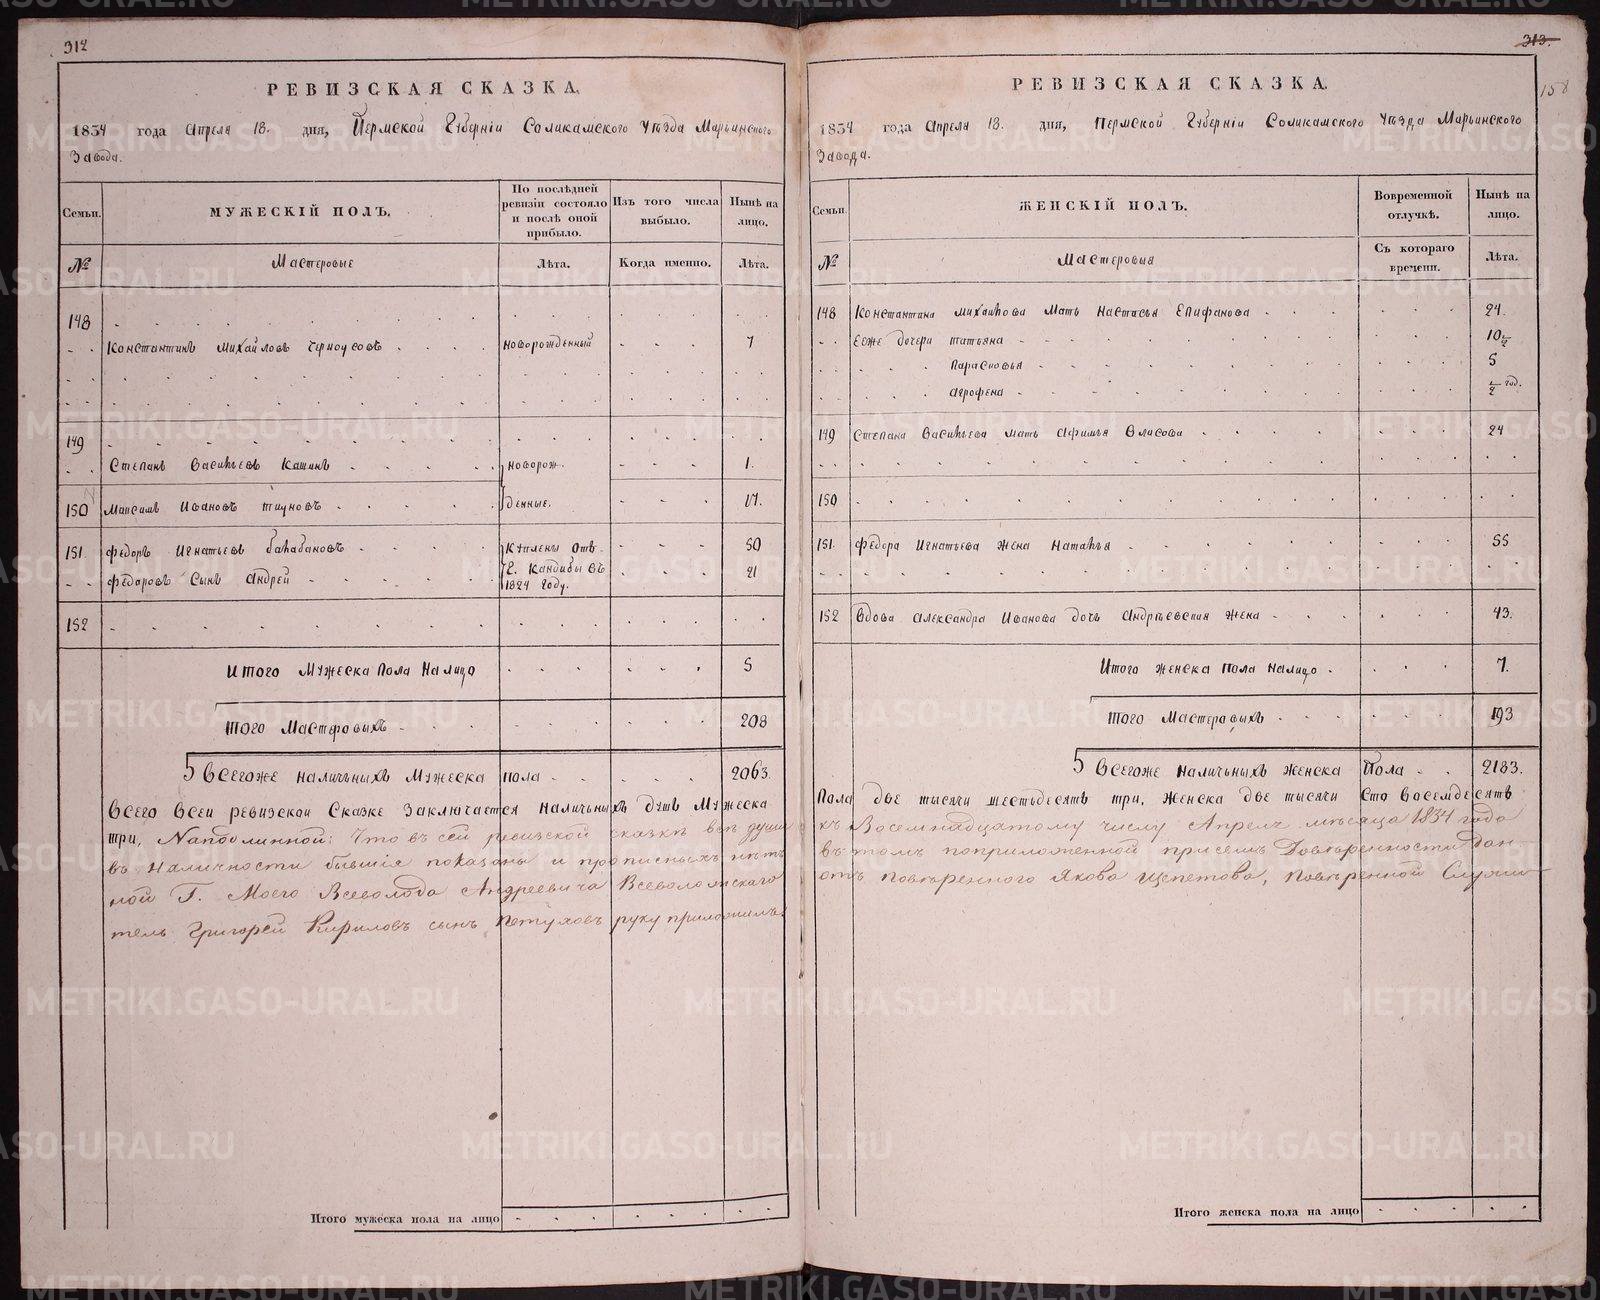 312
РЕВИЗСКАЯ СКАЗКА.
1834 года Апреля 18. дня, Пермской Губернiи Соликамского Уѣзда Марьинского
Завода.
Семьи.
МУЖЕСКIЙ ПОЛЪ.
По послѣдней ревизiи состояло и послѣ оной прибыло.
Изъ того числа выбыло.
Нынѣ на лицо.
№
Мастеровые
Лѣта.
Когда именно.
Лѣта.
148
Константинъ Михайловъ Черноусовъ новорожденный 7
149
Степанъ Васильевъ Кашинъ новорож. 1.
150 Максимъ Ивановъ Тиуновъ денные.
151. Федоръ Игнатьевъ Балабановъ Куплены отъ 50
Федоровъ Сынъ Андрей Г. Кандибы въ 21
1824 Году.
152
Итого Мужеска Пола На лицо 5
Итого Мастеровыхъ 208
Всегоже наличныхъ Мужеска пола 2063.
Всего Всеи ревизскои Сказке Заключается Наличныхъ душъ Мужеска
три, Наподлинной: Что въ сей ревизской сказкѣ всѣ души
въ наличности бывшiя показаны и прописныхъ нѣтъ
ной Г. Моего Всеволода Андреевича Всеволожскаго
тель Григорей Кириловъ сынъ Петуховъ руку приложилъ.
Итого мужеска пола на лицо
313.
158
РЕВИЗСКАЯ СКАЗКА.
1834 года Апреля 18. дня, Пермской Губернiи Соликамского Уѣзда Марьинского
Завода.
Семьи.
ЖЕНСКIЙ ПОЛЪ.
Вовременной отлучкѣ.
Нынѣ на лицо.
№
Мастеровыя
Съ котораго времени.
Лѣта.
148 Константина Михайлова Мать Настасья Епифанова 24.
Ееже дочери татьяна 10 1/2
Парасковья 5
Агрофена 1/2 год.
149 Степана Васильева мать Афимья Власова 24
150
151. Федора Игнатьева Жена Наталья 55
152 Вдова Александра Иванова дочь Андрѣевская Жена 43.
Итого Женска Пола Налицо 7.
Итого Мастеровыхъ 193
Всегоже Наличныхъ Женска Пола 2183.
Пола две тысячи шестьдесятъ три, Женска две тысячи Сто Восемдесятъ
къ Восемнадцатому числу Апреля мѣсяца 1834 года
въ томъ поприложенной присемъ Довѣренности дан-
отъ повѣренного Якова Щепетова, Повѣренной Служи-
Итого женска пола на лицо